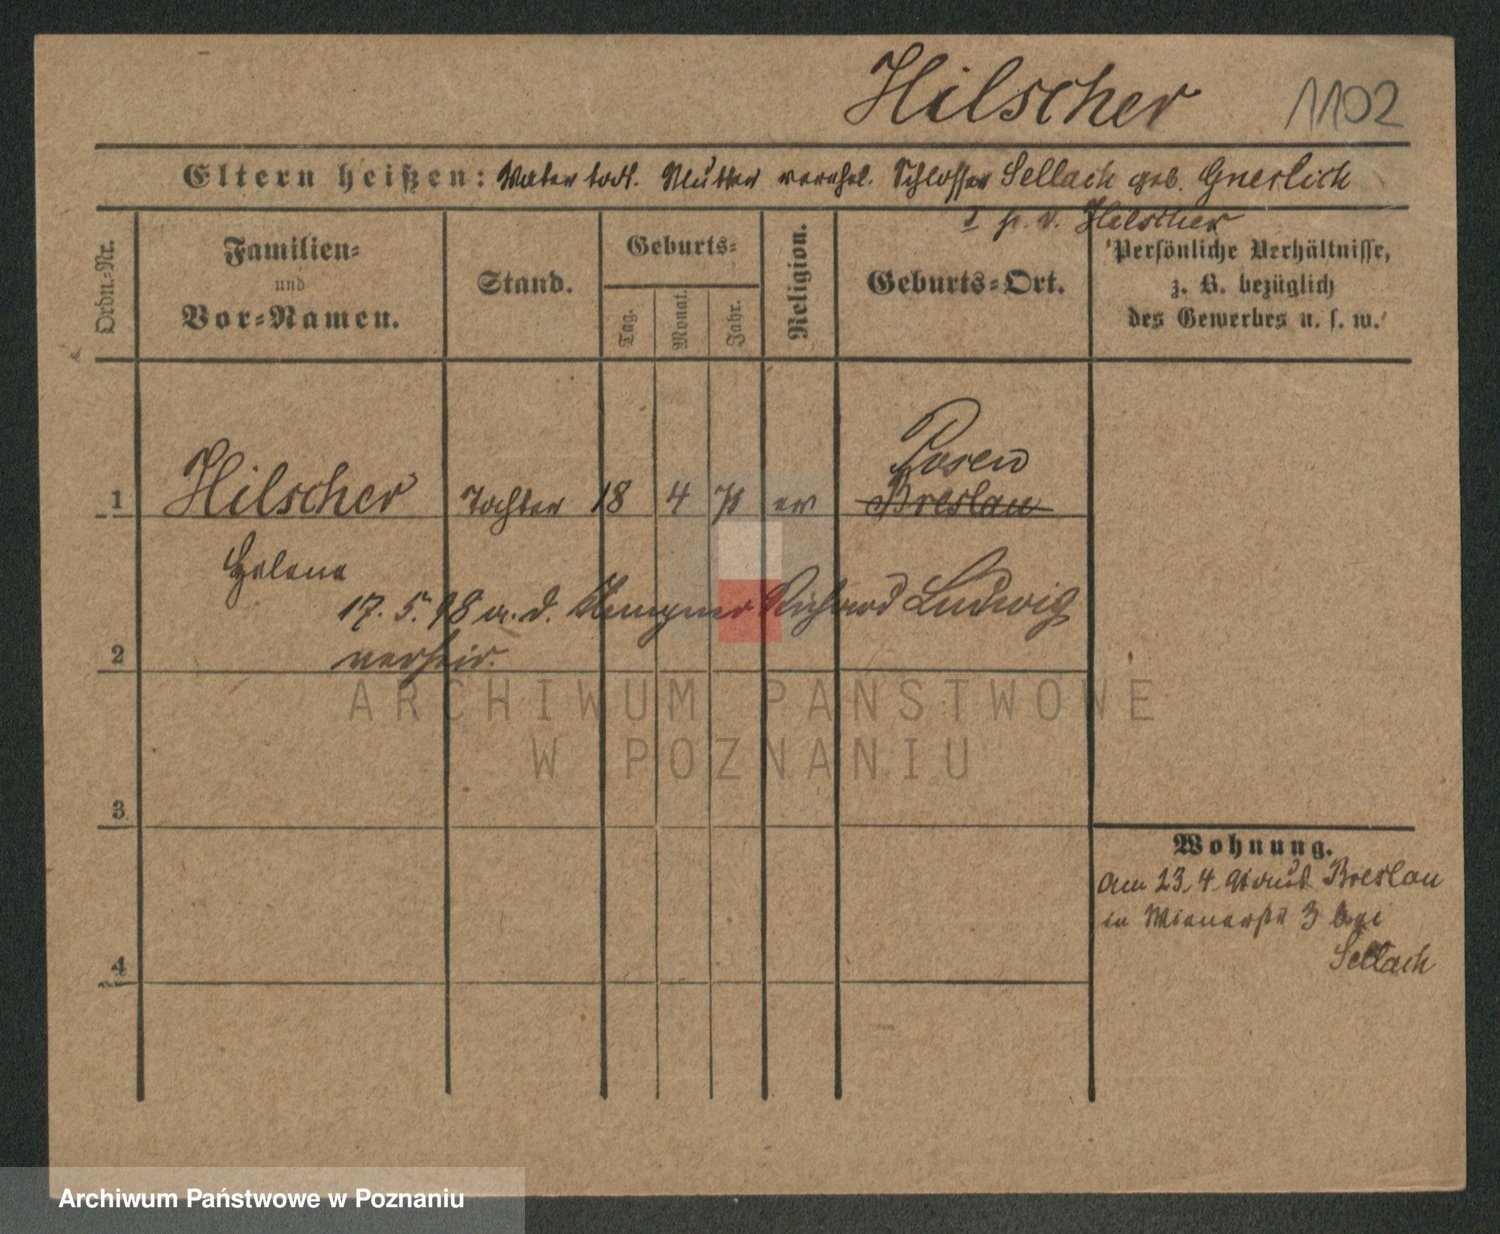 Hilscher 1102
Eltern heißen: Vater todt. Mutter verehel. Schlosser Sellach geb. Gnerlich
I p. v. Hilscher
Ordn.-Nr.
Familien-
und
Vor-Namen.
Stand.
Geburts-
Tag.
Monat.
Jahr.
Religion.
Geburts-Ort.
Persönliche Verhältnisse,
z. B. bezüglich
des Gewerbes u. s. w.
Posen
1 Hilscher Tochter 18 4 71 ev Breslau
Helene
17. 5. 98 a. d. Klempner Richard Ludwig
2 verheir.
ARCHIWUM PAŃSTWOWE
W POZNANIU
3
Wohnung.
Am 23, 4 Breslau
in Wienerstr 3 bei
Sellach
4
Archiwum Państwowe w Poznaniu